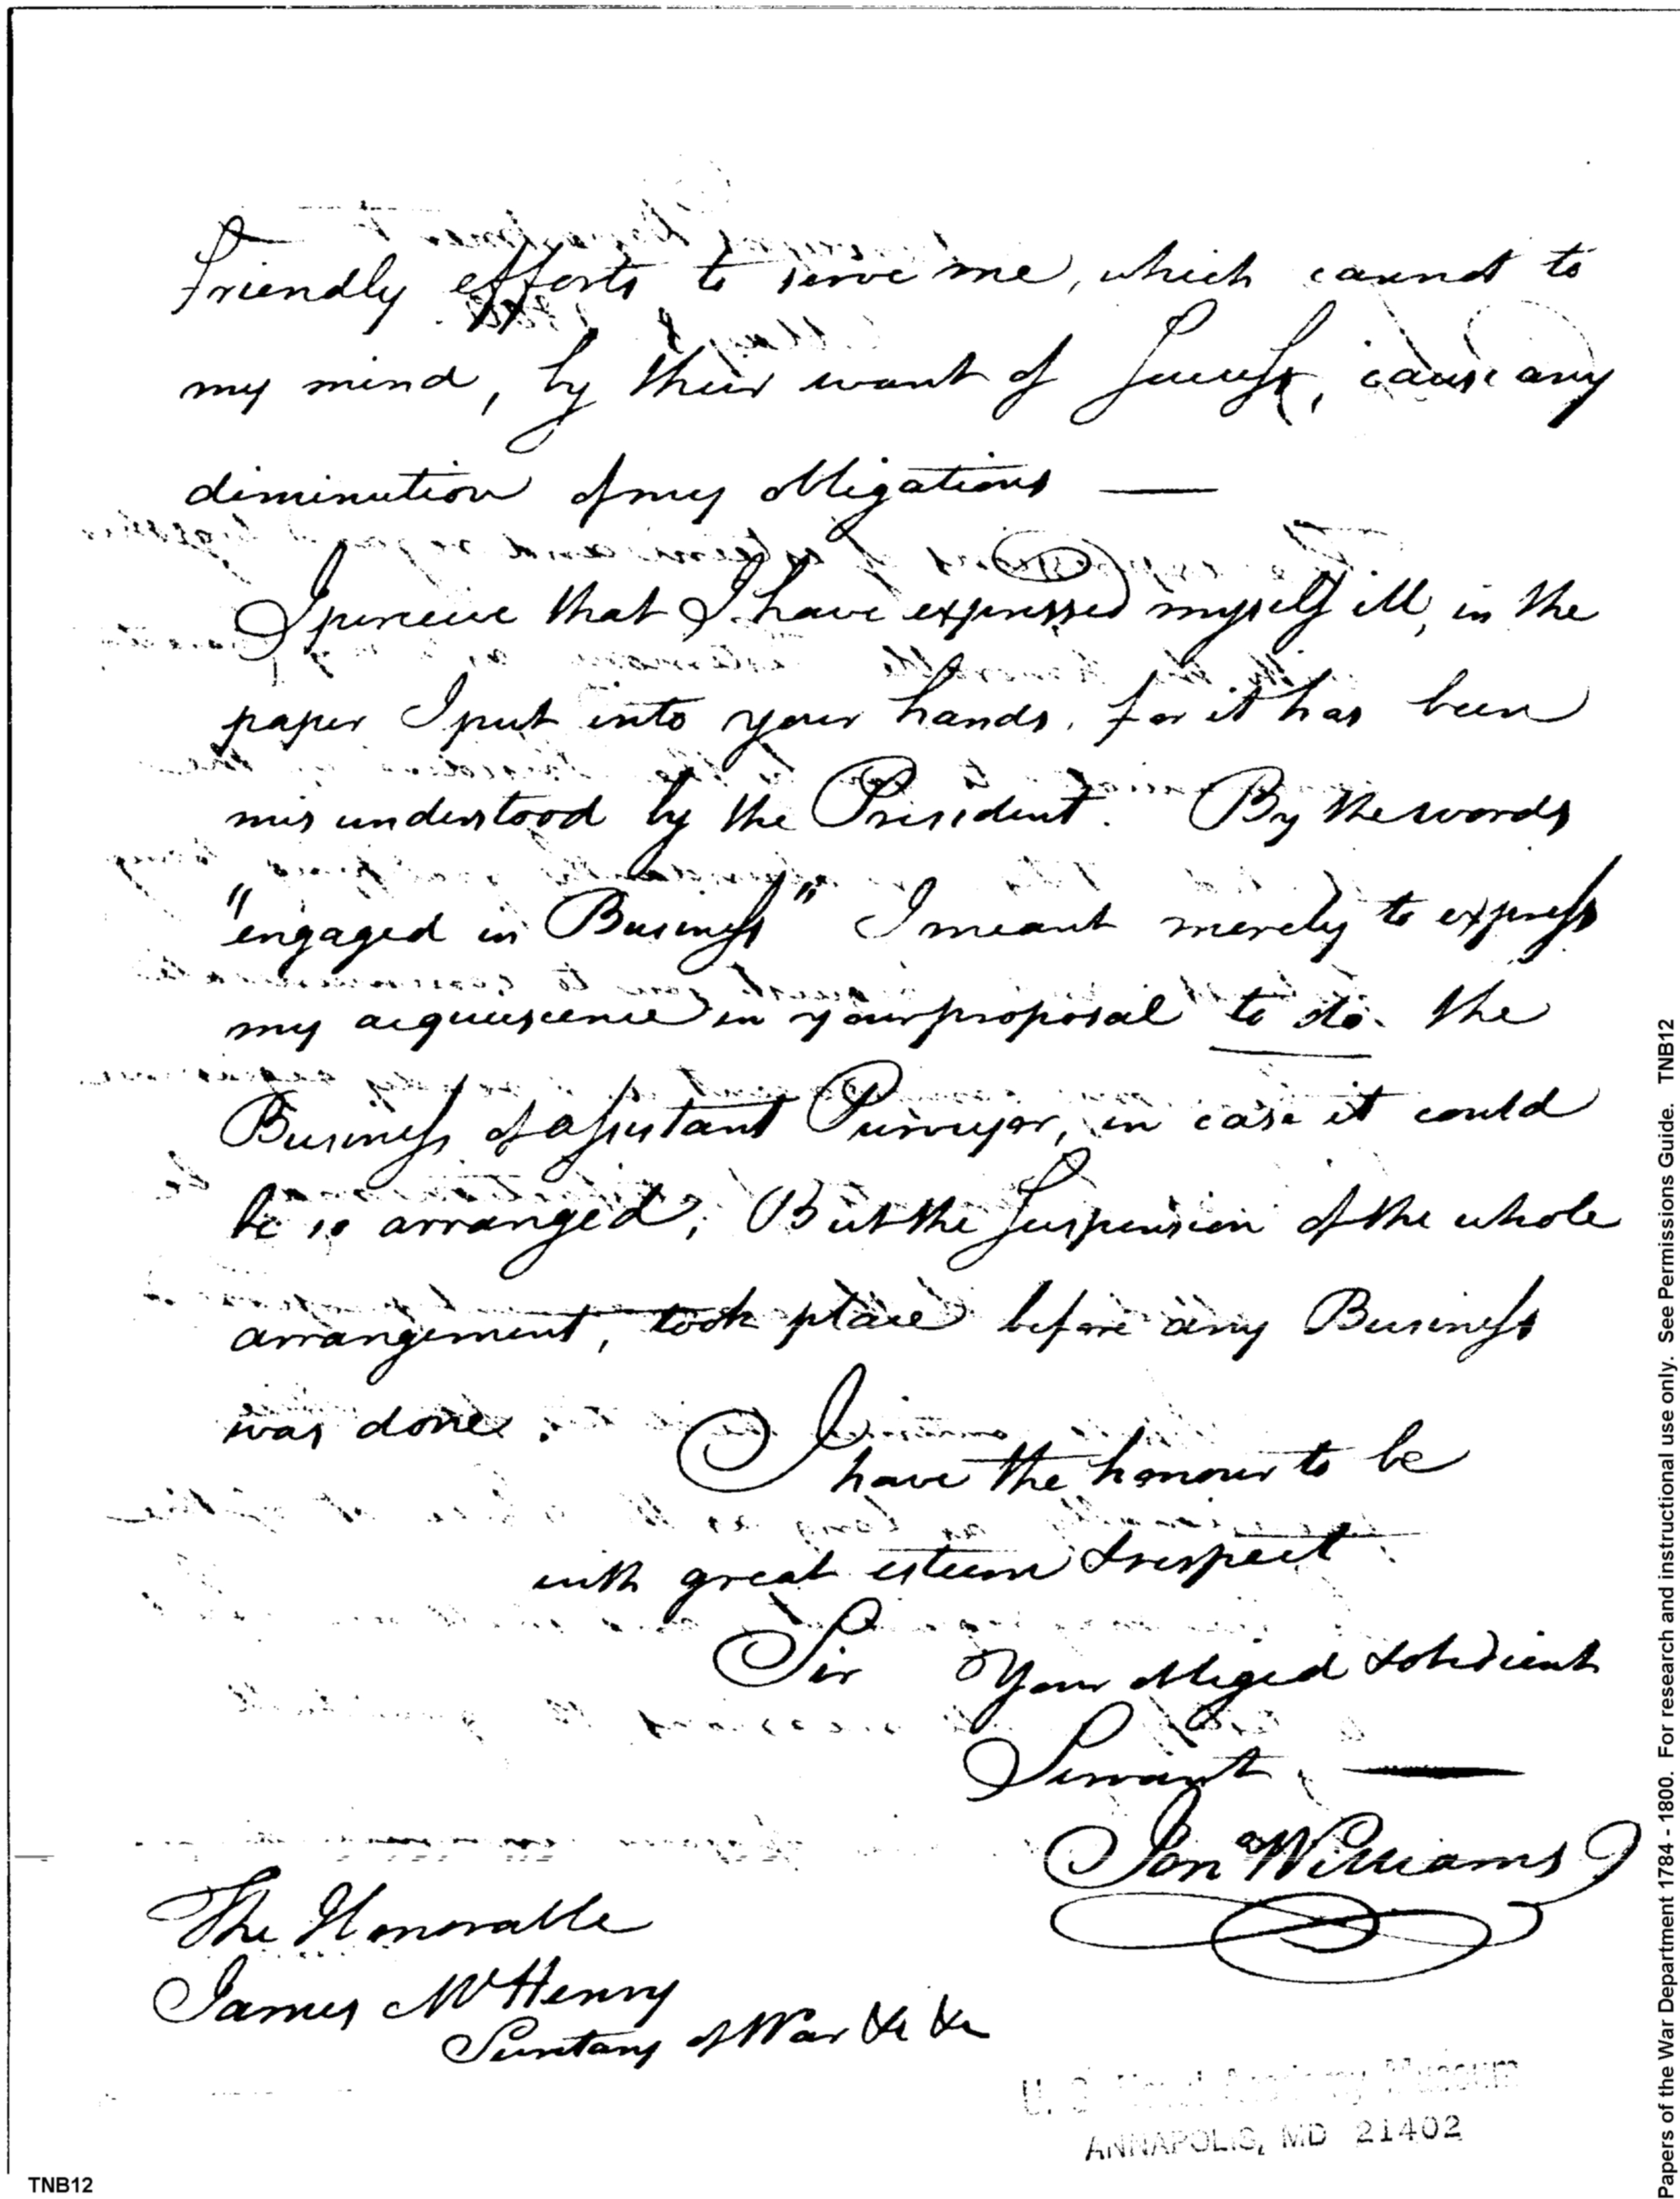 friendly efforts to serve me, which cannot to
my mind, by their want of Success, cause any
diminution of my obligations —
I perceive that I have expressed myself ill, in the
paper I put into your hands, for it has been
misunderstood by the President. By the words
"engaged in Business" I meant merely to express
my acquiescence in your proposal to do the
Business of assistant Purveyor, in case it could
be so arranged; But the Suspension of the whole
arrangement, took place before any Business
was done.
I have the honour to be
with great esteem & respect
Sir Your obliged & obedient
Servant —
Jona Williams
The Honorable
James McHenry
Secretary of War &c &c
U. S. Naval Academy Museum
ANNAPOLIS, MD 21402
TNB12
Papers of the War Department 1784 - 1800. For research and instructional use only. See Permissions Guide. TNB12